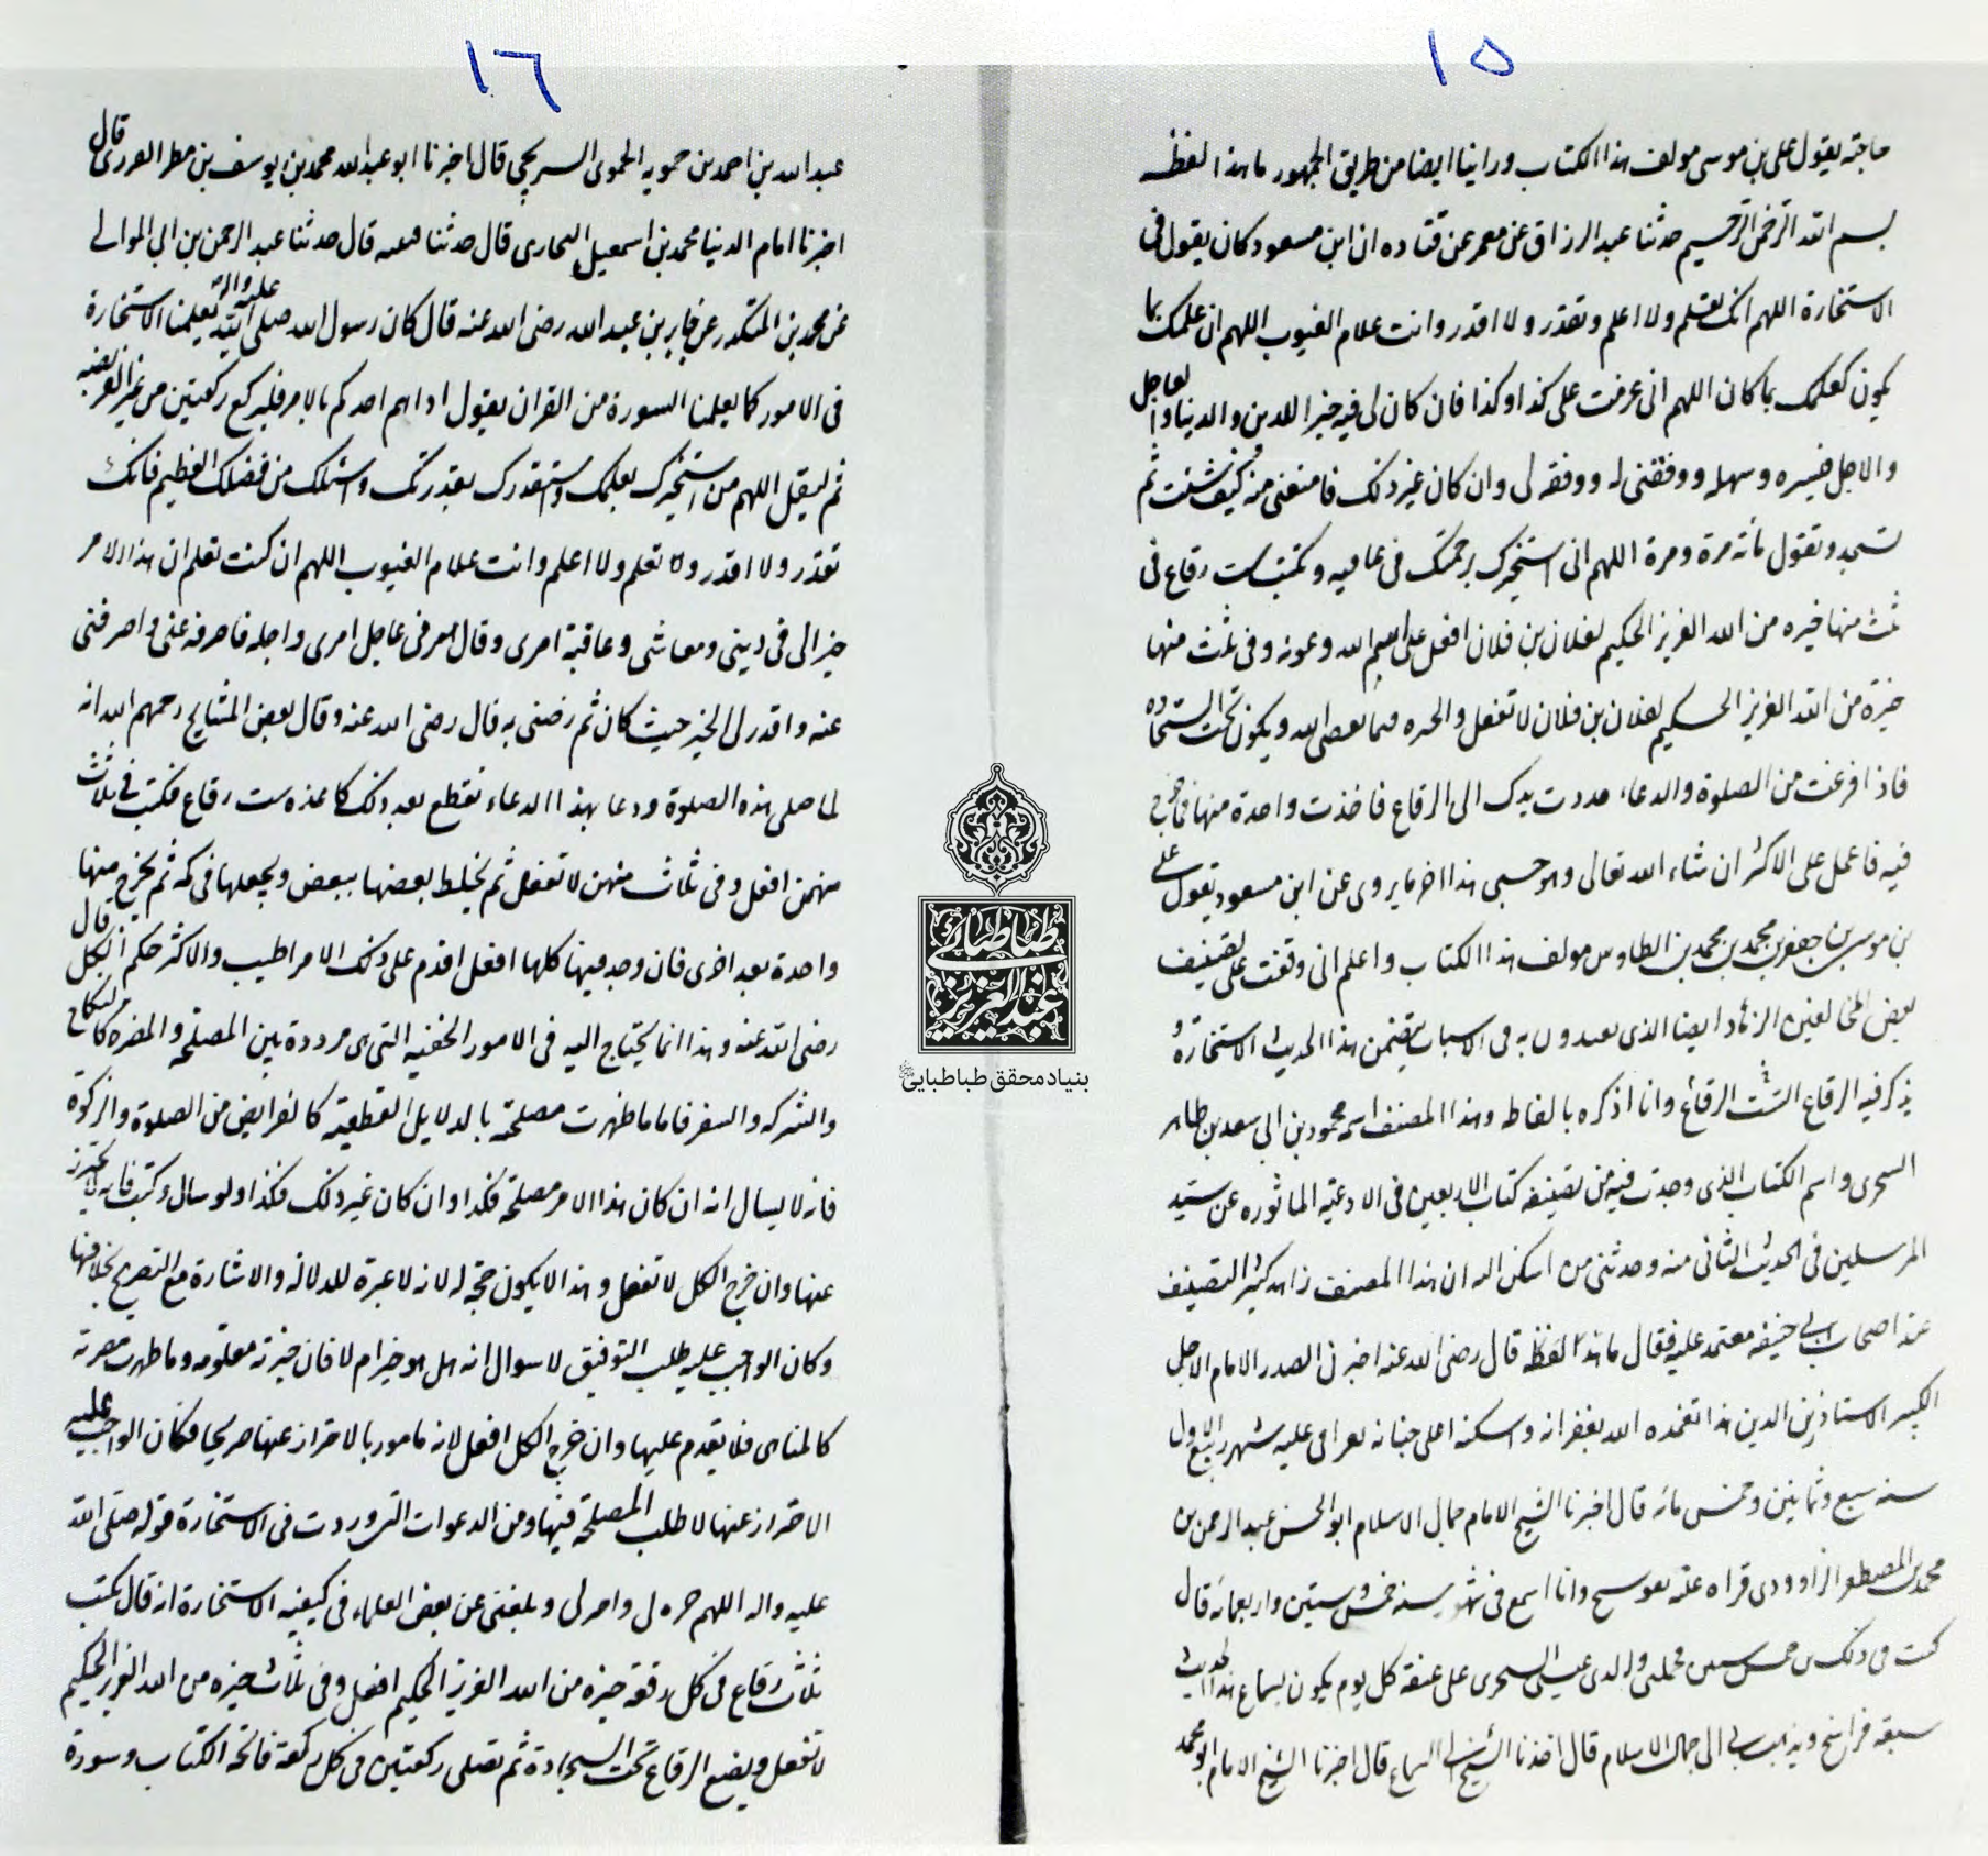 ١٥
حاجته يقول علی بن موسی مولف هذا الكتاب وراينا ايضا من طريق الجمهور ما هذا لفظه
بسم الله الرحمن الرحيم حدثنا عبد الرزاق عن معمر عن قتاده ان ابن مسعود كان يقول فی
الاستخارة اللهم انك تعلم ولا اعلم وتقدر ولا اقدر وانت علام الغيوب اللهم ان علمك بما
يكون كعلمك بما كان اللهم انی عزمت علی كذا وكذا فان كان لی فيه خير للدين والدنيا والعاجل
والاجل فيسره وسهله ووفقنی له ووفقه لی وان كان غير ذلك فامنعنی منه كيف شئت ثم
تسجد وتقول مائة مرة ومرة اللهم انی استخيرك برحمتك فی عافيه وتكتب ست رقاع فی
ثلث منها خيره من الله العزيز الحكيم لفلان بن فلان افعل علی اسم الله وعونه وفی ثلث منها
خيرة من الله العزيز الحكيم لفلان بن فلان لا تفعل والخيره فيما يقضی الله ويكون تحت السجاده
فاذا فرغت من الصلوة والدعاء مددت يدك الی الرقاع فاخذت واحدة منها فما خرج
فيه فاعمل علی الاكثر ان شاء الله تعالی وهو حسبی هذا اخر ما يروی عن ابن مسعود يقول علی
بن موسی بن جعفر بن محمد بن محمد بن الطاوس مولف هذا الكتاب واعلم انی وقفت علی تصنيف
بعض المخالفين الزهاد ايضا الذی يعتدون به فی الاسباب يتضمن هذا الحديث الاستخارة و
يذكر فيه الرقاع الست الرقائع وانا اذكره بالفاظه وهذا المصنف اسمه محمود بن ابی سعد بن طاهر
السجزی واسم الكتاب الذی وجدت فيه من تصنيفه كتاب الاربعين فی الادعية الماثوره عن سيد
المرسلين فی الحديث الثانی منه وحدثنی من اسكن اليه ان هذا المصنف زاهد كثير التصنيف
عند اصحاب ابی حنيفه معتمد عليه فقال ما هذا لفظه قال رضی الله عنه اخبرنی الصدر الامام الاجل
الكبير الاستاذ زين الدين هذا تغمده الله بغفرانه واسكنه اعلی جنانه بقراءتی عليه شهر ربيع الاول
سنه سبع وثمانين وخمس مائه قال اخبرنا الشيخ الامام جمال الاسلام ابو الحسن عبد الرحمن بن
محمد بن المظفر الداوودی قراه عليه ببوسنج وانا اسمع فی شهور سنه خمس وستين واربعمائه قال
كنت فی ذلك بن خمس سنين فحملنی والدی عيسی السجزی علی عنقه كل يوم يكون لسماع هذا الحديث
سبعه فراسخ ويذهب بی الی جمال الاسلام قال اخذنا الشيخ السماع قال اخبرنا الشيخ الامام ابو محمد
١٦
عبد الله بن احمد بن حمويه الحموی السرخسی قال اخبرنا ابو عبد الله محمد بن يوسف بن مطر الفربری قال
اخبرنا امام الدنيا محمد بن اسمعيل البخاری قال حدثنا قتيبه قال حدثنا عبد الرحمن بن ابی الموالی
عن محمد بن المنكدر عن جابر بن عبد الله رضی الله عنه قال كان رسول الله صلی الله عليه واله يعلمنا الاستخارة
فی الامور كما يعلمنا السورة من القران يقول اذا هم احدكم بالامر فليركع ركعتين من غير الفريضه
ثم ليقل اللهم من استخيرك بعلمك واستقدرك بقدرتك واسئلك من فضلك العظيم فانك
تقدر ولا اقدر و تعلم ولا اعلم وانت علام الغيوب اللهم ان كنت تعلم ان هذا الامر
خيرا لی فی دينی ومعاشی وعاقبة امری وقال فی عاجل امری واجله فاصرفه عنی واصرفنی
عنه واقدر لی الخير حيث كان ثم رضنی به قال رضی الله عنه وقال بعض المشايخ رحمهم الله انه
لما صلی هذه الصلوة ودعا بهذا الدعاء يقطع بعد ذلك كاغذه ست رقاع فكتب فی ثلاث
منهن افعل وفی ثلاث منهن لا تفعل ثم يخلط بعضها ببعض ويجعلها فی كمه ثم يخرج منها
واحدة بعد اخری فان وجد فيها كلها افعل اقدم علی ذلك الامر اطيب والاكثر حكم الكل قال
رضی الله عنه وهذا انما يحتاج اليه فی الامور الخفيه التی هی مرددة بين المصلحة والمضره كالنكاح
والشركه والسفر فاما ما ظهرت مصلحته بالدلايل القطعية كالفرايض من الصلوة والزكوة
فانه لا يسال انه ان كان هذا الامر مصلحة فكذا وان كان غير ذلك فكذا ولو سال وكتب فانه لا يحترز
عنها وان خرج الكل لا تفعل وهذا لا يكون حجة له لانه لا عبرة للدلالة والاشارة مع التصريح بخلافها
وكان الواجب عليه طلب التوفيق لا سوال انه هل هو خير ام لا فان خيرته معلومه وما ظهرت مضرته
كالمناهی فلا يقدم عليها وان خرج الكل افعل لانه مامور بالاحتراز عنها صريحا فكان الواجب عليه
الاحتراز عنها لا طلب المصلحة فيها ومن الدعوات التی وردت فی الاستخارة قوله صلی الله
عليه واله اللهم خره لی واختر لی وبلغنی عن بعض العلماء فی كيفيه الاستخارة انه قال يكتب
ثلاث رقاع فی كل رقعة خيره من الله العزيز الحكيم افعل وفی ثلاث خيره من الله العزيز الحكيم
لا تفعل ويضع الرقاع تحت السجادة ثم تصلی ركعتين فی كل ركعة فاتحة الكتاب وسورة
طباطبائی
عبدالعزيز
بنیاد محقق طباطبایی